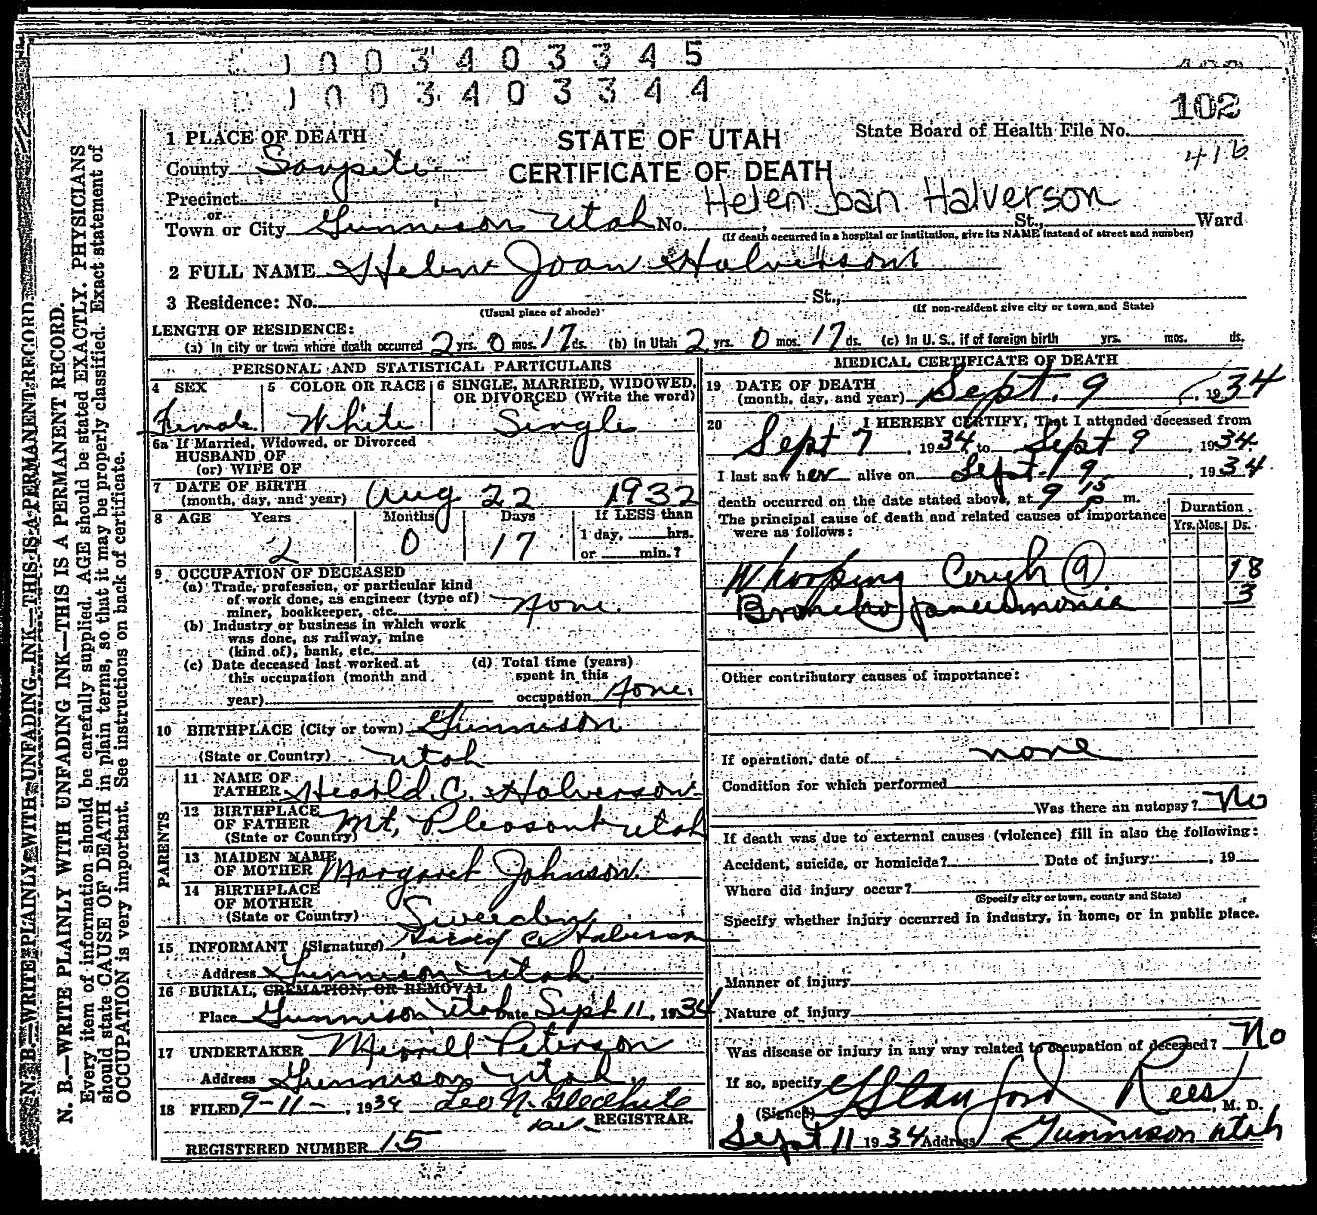 1003403345
1003403344
102
1 PLACE OF DEATH
STATE OF UTAH
State Board of Health File No.
County Sanpete
CERTIFICATE OF DEATH
416
Precinct
Helen Joan Halverson
or
Town or City Gunnison Utah No. St., Ward
(If death occurred in a hospital or institution, give its NAME instead of street and number)
2 FULL NAME Helen Joan Halverson
3 Residence: No. St.,
(Usual place of abode) (If non-resident give city or town and State)
LENGTH OF RESIDENCE:
(a) In city or town where death occurred 2 yrs. 0 mos. 17 ds. (b) In Utah 2 yrs. 0 mos. 17 ds. (c) In U. S., if of foreign birth yrs. mos. ds.
PERSONAL AND STATISTICAL PARTICULARS
4 SEX
Female
5 COLOR OR RACE
White
6 SINGLE, MARRIED, WIDOWED,
OR DIVORCED (Write the word)
Single
6a If Married, Widowed, or Divorced
HUSBAND OF
(or) WIFE OF
7 DATE OF BIRTH
(month, day, and year) Aug 22 1932
8 AGE Years Months Days If LESS than
1 day, hrs.
2 0 17 or min.?
9 OCCUPATION OF DECEASED
(a) Trade, profession, or particular kind
of work done, as engineer (type of)
miner, bookkeeper, etc. None.
(b) Industry or business in which work
was done, as railway, mine
(kind of), bank, etc.
(c) Date deceased last worked at
this occupation (month and
year)
(d) Total time (years)
spent in this
occupation None.
10 BIRTHPLACE (City or town) Gunnison
(State or Country) Utah
PARENTS
11 NAME OF
FATHER Hearld C. Halverson
12 BIRTHPLACE
OF FATHER Mt. Pleasant Utah
(State or Country)
13 MAIDEN NAME
OF MOTHER Margaret Johnson.
14 BIRTHPLACE
OF MOTHER
(State or Country) Sweeden
15 INFORMANT (Signature) Harold C. Halverson
Address Gunnison Utah.
16 BURIAL, CREMATION, OR REMOVAL
Place Gunnison Utah Date Sept 11, 1934
17 UNDERTAKER Merrill Peterson
Address Gunnison Utah.
18 FILED 9-11-, 1934 Leo N.
REGISTRAR.
REGISTERED NUMBER 15
MEDICAL CERTIFICATE OF DEATH
19 DATE OF DEATH
(month, day, and year) Sept. 9, 1934
20 I HEREBY CERTIFY, That I attended deceased from
Sept 7, 1934, to Sept 9, 1934.
I last saw her alive on Sept 9, 1934
death occurred on the date stated above, at 9 15 P m.
The principal cause of death and related causes of importance
were as follows:
Duration
Yrs. Mos. Ds.
Whooping Cough (9) 18
Broncho pneumonia 3
Other contributory causes of importance:
If operation, date of none
Condition for which performed
Was there an autopsy? No
If death was due to external causes (violence) fill in also the following:
Accident, suicide, or homicide? Date of injury , 19
Where did injury occur?
(Specify city or town, county and State)
Specify whether injury occurred in industry, in home, or in public place.
Manner of injury
Nature of injury
Was disease or injury in any way related to occupation of deceased? No
If so, specify
(Signed) G Stanford Rees, M. D.
Sept 11 1934 Address Gunnison Utah
N. B.—WRITE PLAINLY WITH UNFADING INK—THIS IS A PERMANENT RECORD.
N. B.—WRITE PLAINLY WITH UNFADING INK—THIS IS A PERMANENT RECORD.
Every item of information should be carefully supplied. AGE should be stated EXACTLY. PHYSICIANS
should state CAUSE OF DEATH in plain terms, so that it may be properly classified. Exact statement of
OCCUPATION is very important. See instructions on back of certificate.